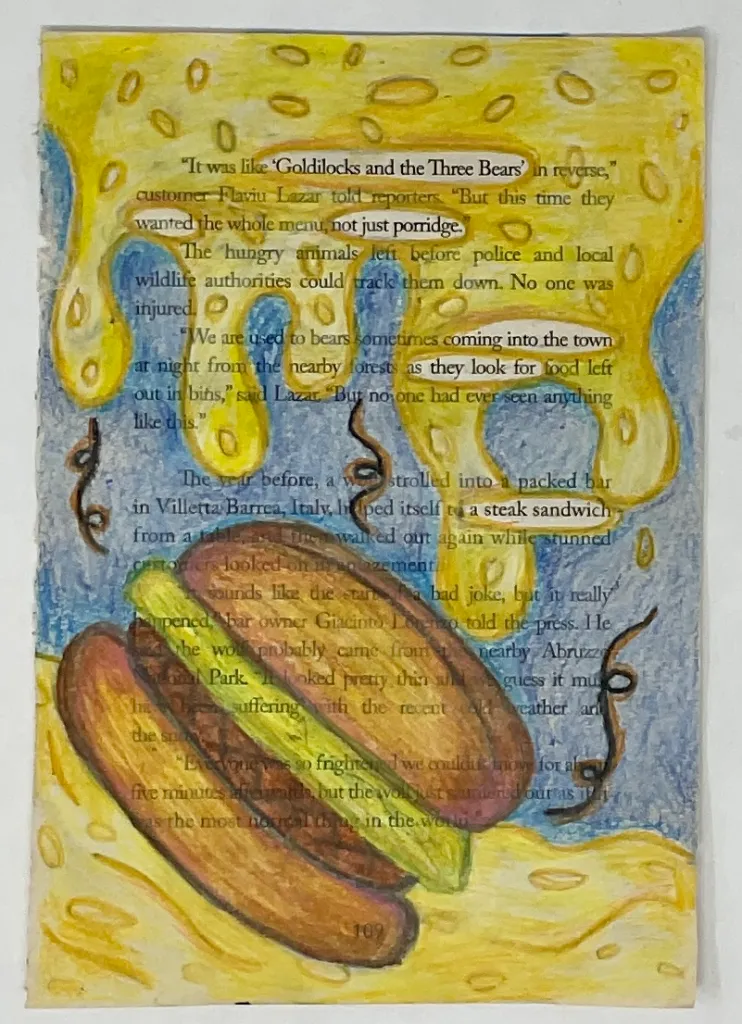 "It was like 'Goldilocks and the Three Bears' in reverse,"
customer Flaviu Lazar told reporters. "But this time they
wanted the whole menu, not just porridge."
The hungry animals left before police and local
wildlife authorities could track them down. No one was
injured.
"We are used to bears sometimes coming into the town
at night from the nearby forests as they look for food left
out in bins," said Lazar. "But no one had ever seen anything
like this."
The year before, a strolled into a packed bar
in Villetta Barrea, Italy, helped itself to a steak sandwich
from a table, and then walked out again while stunned
customers looked on in amazement.
sounds like the start a bad joke, but it really
happened," bar owner Giacinto told the press. He
the wolf probably came from nearby Abruzzo
Park. "It looked pretty thin and guess it
been suffering with the recent weather and
the
"Everyone was so frightened we couldn't move for about
five minutes afterwards, but the wolf just out as if
was the most normal thing in the world."
109